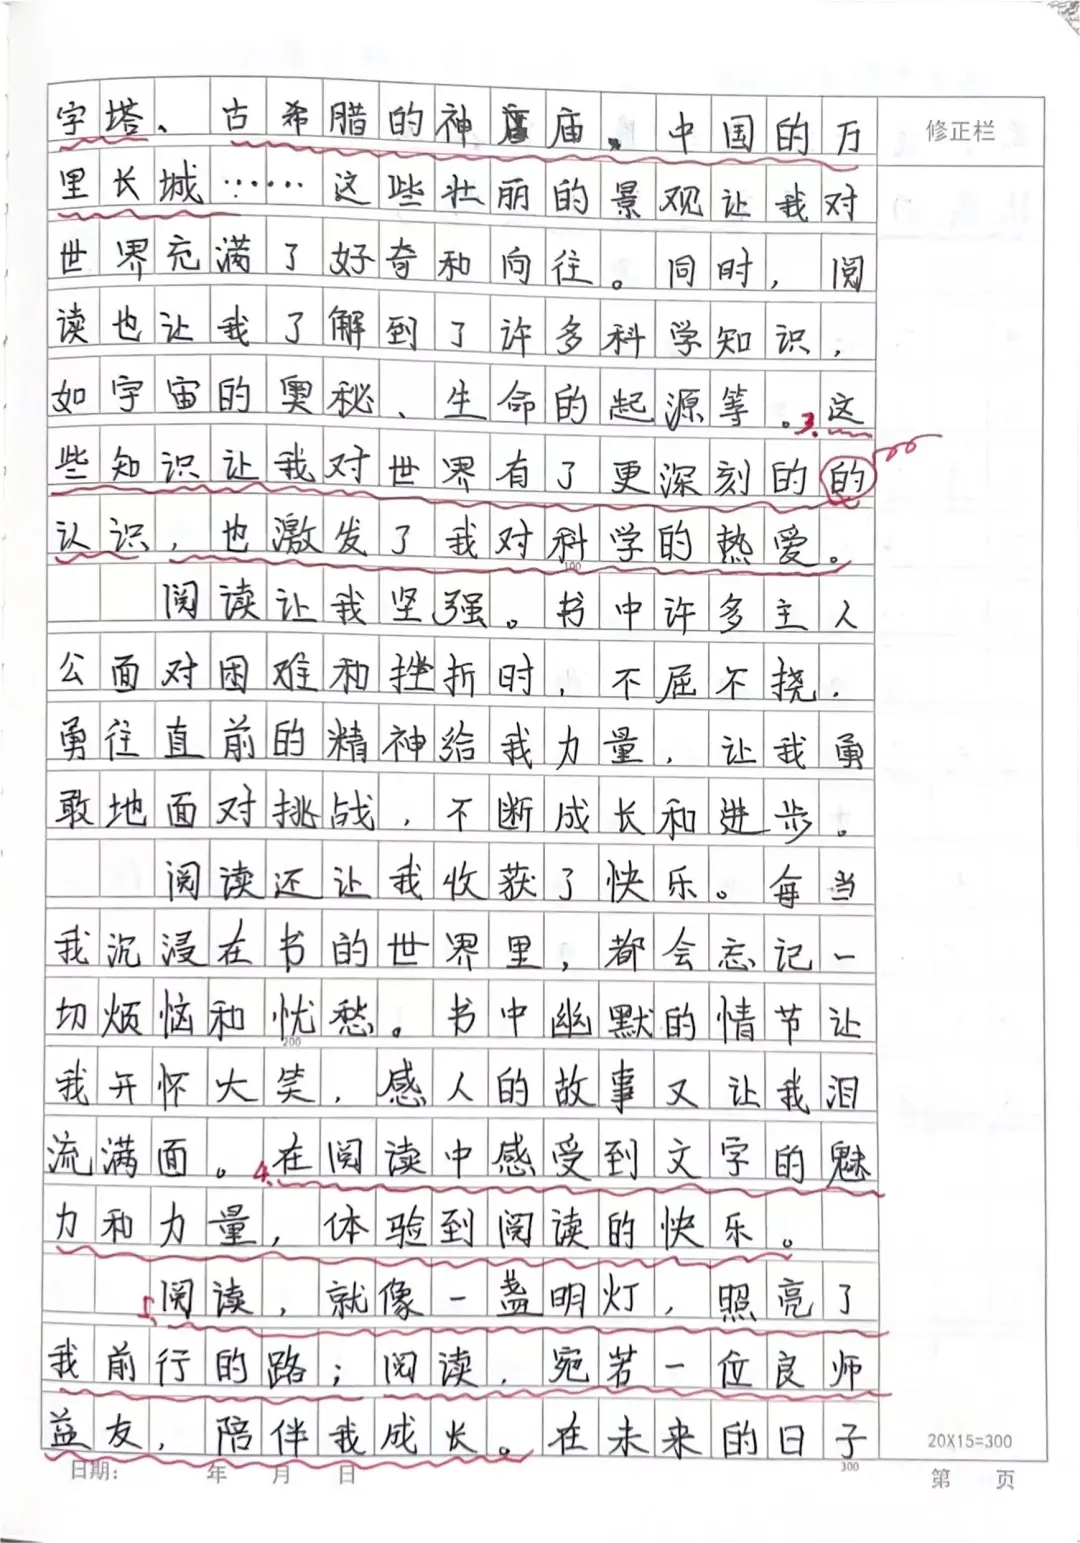 字塔、古希腊的神庙、中国的万
修正栏
里长城……这些壮丽的景观让我对
世界充满了好奇和向往。同时，阅
读也让我了解到了许多科学知识，
如宇宙的奥秘、生命的起源等。3.这
些知识让我对世界有了更深刻的的
认识，也激发了我对科学的热爱。
100
阅读让我坚强。书中许多主人
公面对困难和挫折时，不屈不挠，
勇往直前的精神给我力量，让我勇
敢地面对挑战，不断成长和进步。
阅读还让我收获了快乐。每当
我沉浸在书的世界里，都会忘记一
切烦恼和忧愁。书中幽默的情节让
200
我开怀大笑，感人的故事又让我泪
流满面。4.在阅读中感受到文字的魅
力和力量，体验到阅读的快乐。
5.阅读，就像一盏明灯，照亮了
我前行的路；阅读，宛若一位良师
益友，陪伴我成长。在未来的日子
20X15=300
日期： 年 月 日
300
第 页